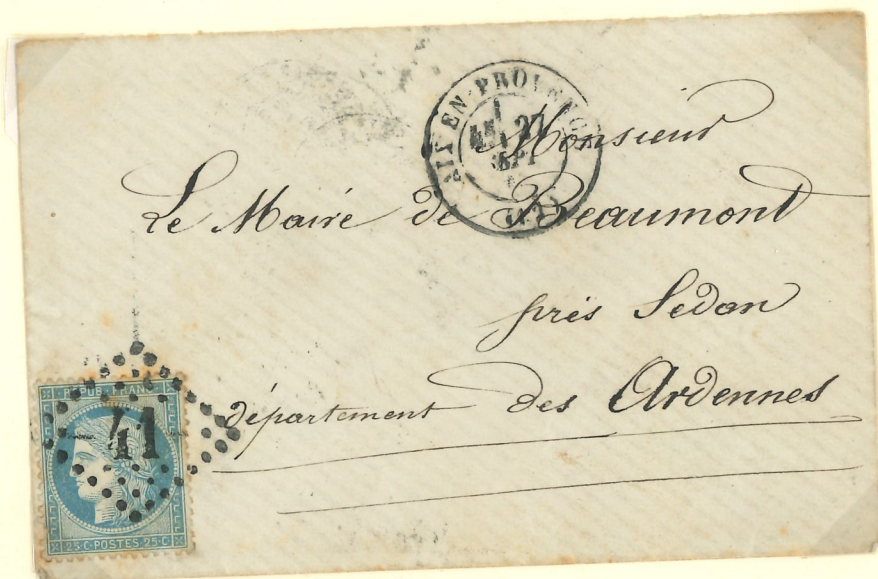 AIX-EN-PROVENCE
27
SEPT
Monsieur
Le Maire de Beaumont
près Sedan
département des Ardennes
REPUB. FRANC.
41
25·C·POSTES·25·C